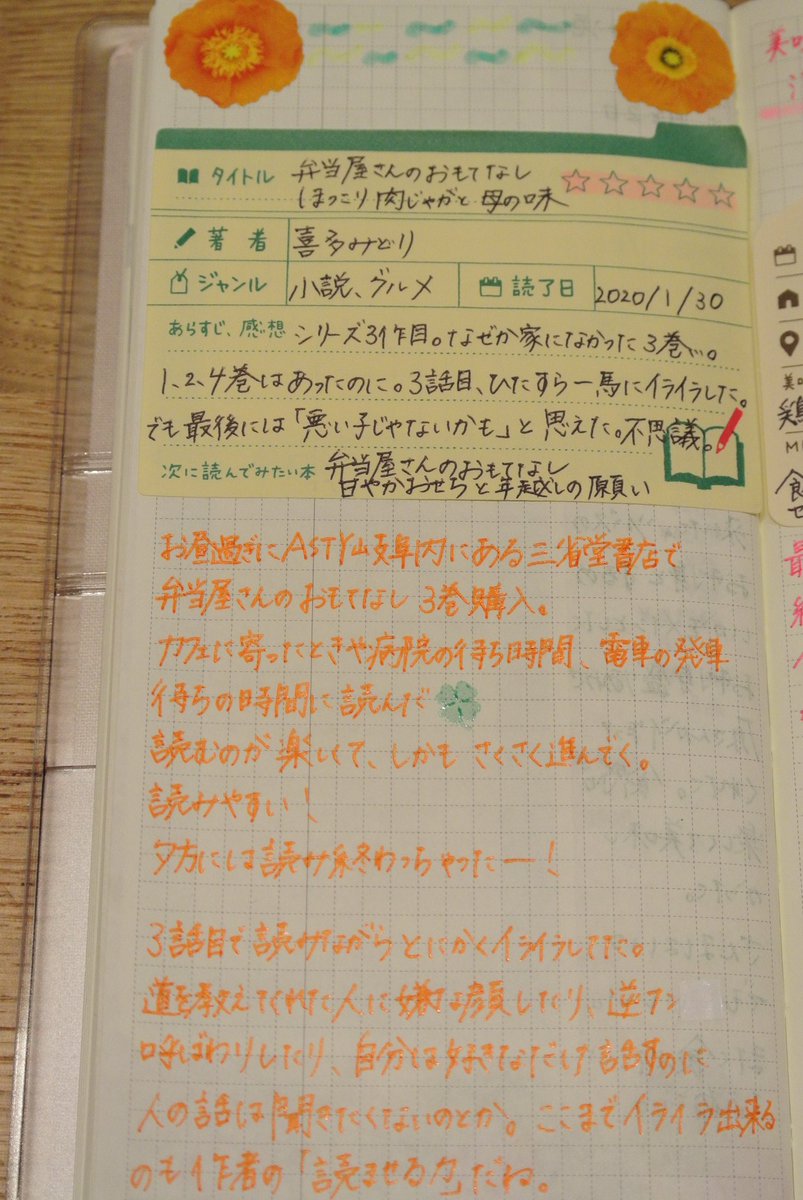 タイトル 弁当屋さんのおもてなし
ほっこり肉じゃがと母の味
著者 喜多みどり
ジャンル 小説、グルメ 読了日 2020/1/30
あらすじ、感想 シリーズ3作目。なぜか家になかった3巻…。
1、2、4巻はあったのに。3話目、ひたすら一馬にイライラした。
でも最後には「悪い子じゃないかも」と思えた。不思議。
次に読んでみたい本 弁当屋さんのおもてなし
甘やかおせちと年越しの願い
お昼過ぎにASTY岐阜内にある三省堂書店で
弁当屋さんのおもてなし 3巻購入。
カフェに寄ったときや病院の待ち時間、電車の発車
待ちの時間に読んだ
読むのが楽しくて、しかもさくさく進んでく。
読みやすい!
夕方には読み終わっちゃったー!
3話目で読みながらとにかくイライラしてた。
道を教えてくれた人に嫌な顔したり、逆ナン
呼ばわりしたり、自分は好きなだけ話すのに
人の話は聞きたくないのとか。ここまでイライラ出来る
のも作者の「読ませる力」だね。